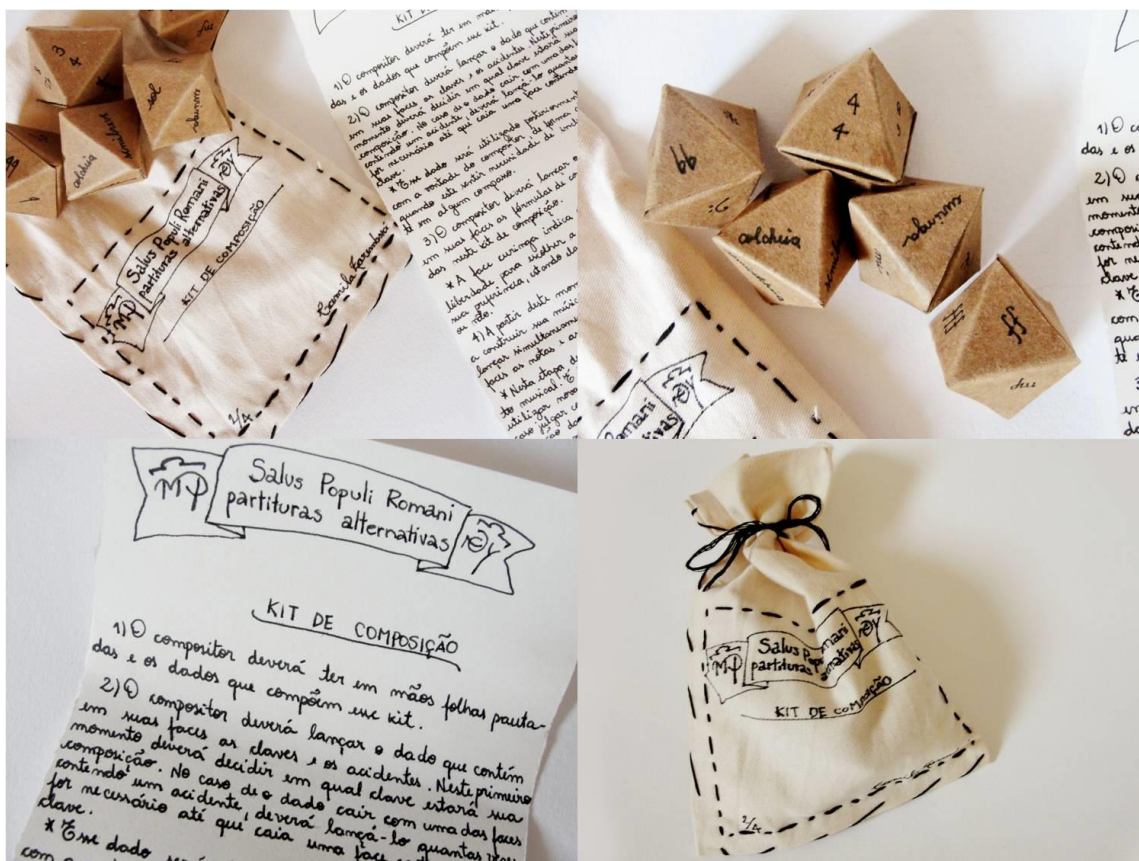 3
4
sol
colcheia
Salus Populi Romani
partituras
alternativas
KIT DE COMPOSIÇÃO
2/4
KIT DE
1) O compositor deverá ter em mã
das e os dados que compõem esse kit.
2) O compositor deverá lançar o dado que
em suas faces as claves e os acidentes. Neste primei
momento deverá decidir em qual clave estará sua
composição. No caso de o dado cair com uma das f
contendo um acidente, deverá lançá-lo quantas
for necessário até que caia uma face contendo
clave.
* Esse dado será utilizado posteriormen
com a vontade do compositor de forma
quando este sentir necessidade de
em algum compasso.
3) O compositor deverá lançar o
em suas faces as fórmulas de co
das neste kit de composição.
* A face curinga indica
liberdade para escolher a
sua preferência, estando da
ou não.
4) A partir deste mom
a construir sua músic
lançar simultaneam
faces as notas e as
* Nesta etapa do
to musical. E
utilizar nova
caso julgar co
4
4
colcheia
curinga
mi
ff
mp
omani
1) O co
das e os
2) O
em sua
moment
composi
contend
for ne
clave
* E
com
qua
te e
3
en
da
Salus Populi Romani
partituras alternativas
KIT DE COMPOSIÇÃO
1) O compositor deverá ter em mãos folhas pauta-
das e os dados que compõem esse kit.
2) O compositor deverá lançar o dado que contém
em suas faces as claves e os acidentes. Neste primeiro
momento deverá decidir em qual clave estará sua
composição. No caso de o dado cair com uma das faces
contendo um acidente, deverá lançá-lo quantas vezes
for necessário até que caia uma face
clave.
* Esse dado
Salus Po mani
partituras ernativas
KIT DE COMPOSIÇÃO
2/4